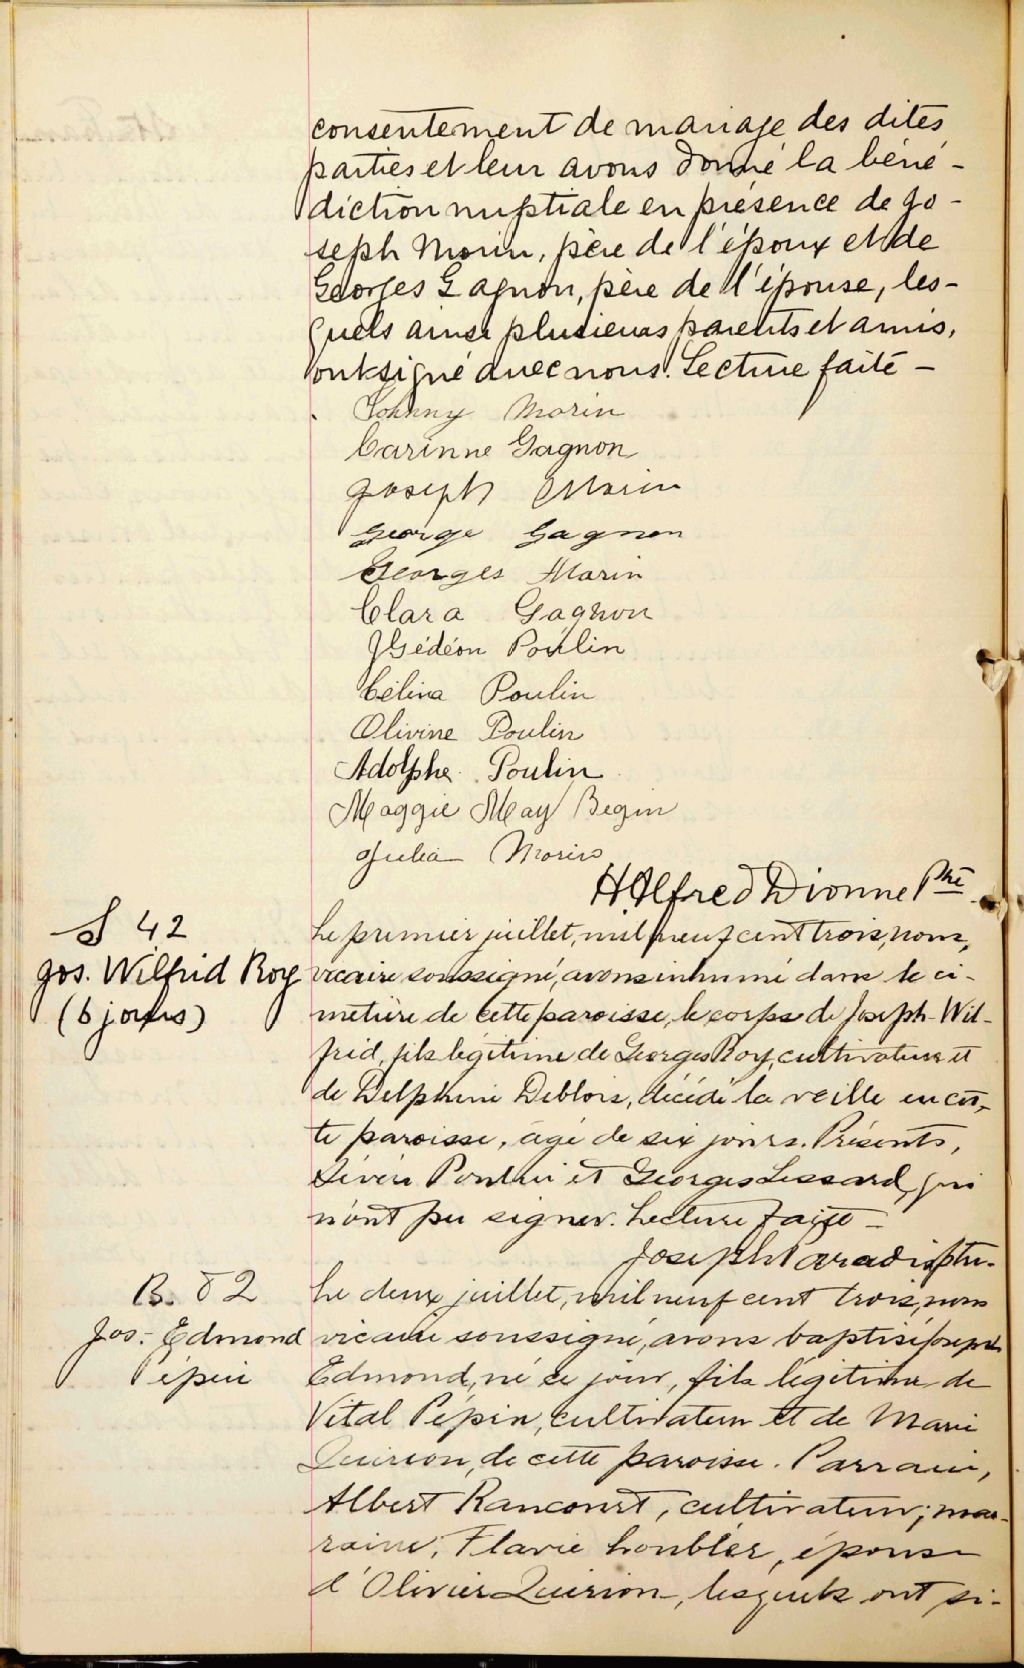 consentement de mariage des dites
parties et leur avons donné la béné-
diction nuptiale en présence de Jo-
seph Morin, père de l'époux et de
Georges Gagnon, père de l'épouse, les-
quels ainsi plusieurs parents et amis,
ont signé avec nous. Lecture faite -
Johnny Morin
Carinne Gagnon
Joseph Morin
George Gagnon
Georges Morin
Clara Gagnon
J Gédéon Poulin
Célina Poulin
Olivine Poulin
Adolphe Poulin
Maggie May Begin
Julia Morin
H Alfred Dionne Ptre
S 42
Jos. Wilfrid Roy
(6 jours)
Le premier juillet, mil neuf cent trois, nous,
vicaire soussigné, avons inhumé dans le ci-
metière de cette paroisse, le corps de Joseph-Wil-
frid, fils légitime de Georges Roy, cultivateur et
de Delphine Deblois, décédé la veille en cet-
te paroisse, âgé de six jours. Présents,
Sévère Poulin et Georges Lessard, qui
n'ont pu signer. Lecture faite -
Joseph Paradis ptre.
B. 82
Jos. Edmond
Pépin
Le deux juillet, mil neuf cent trois, nous
vicaire soussigné, avons baptisé Joseph
Edmond, né ce jour, fils légitime de
Vital Pépin, cultivateur et de Marie
Quirion, de cette paroisse. Parrain,
Albert Rancourt, cultivateur; mar-
raine, Flavie Loubier, épouse
d'Olivier Quirion, lesquels ont si-